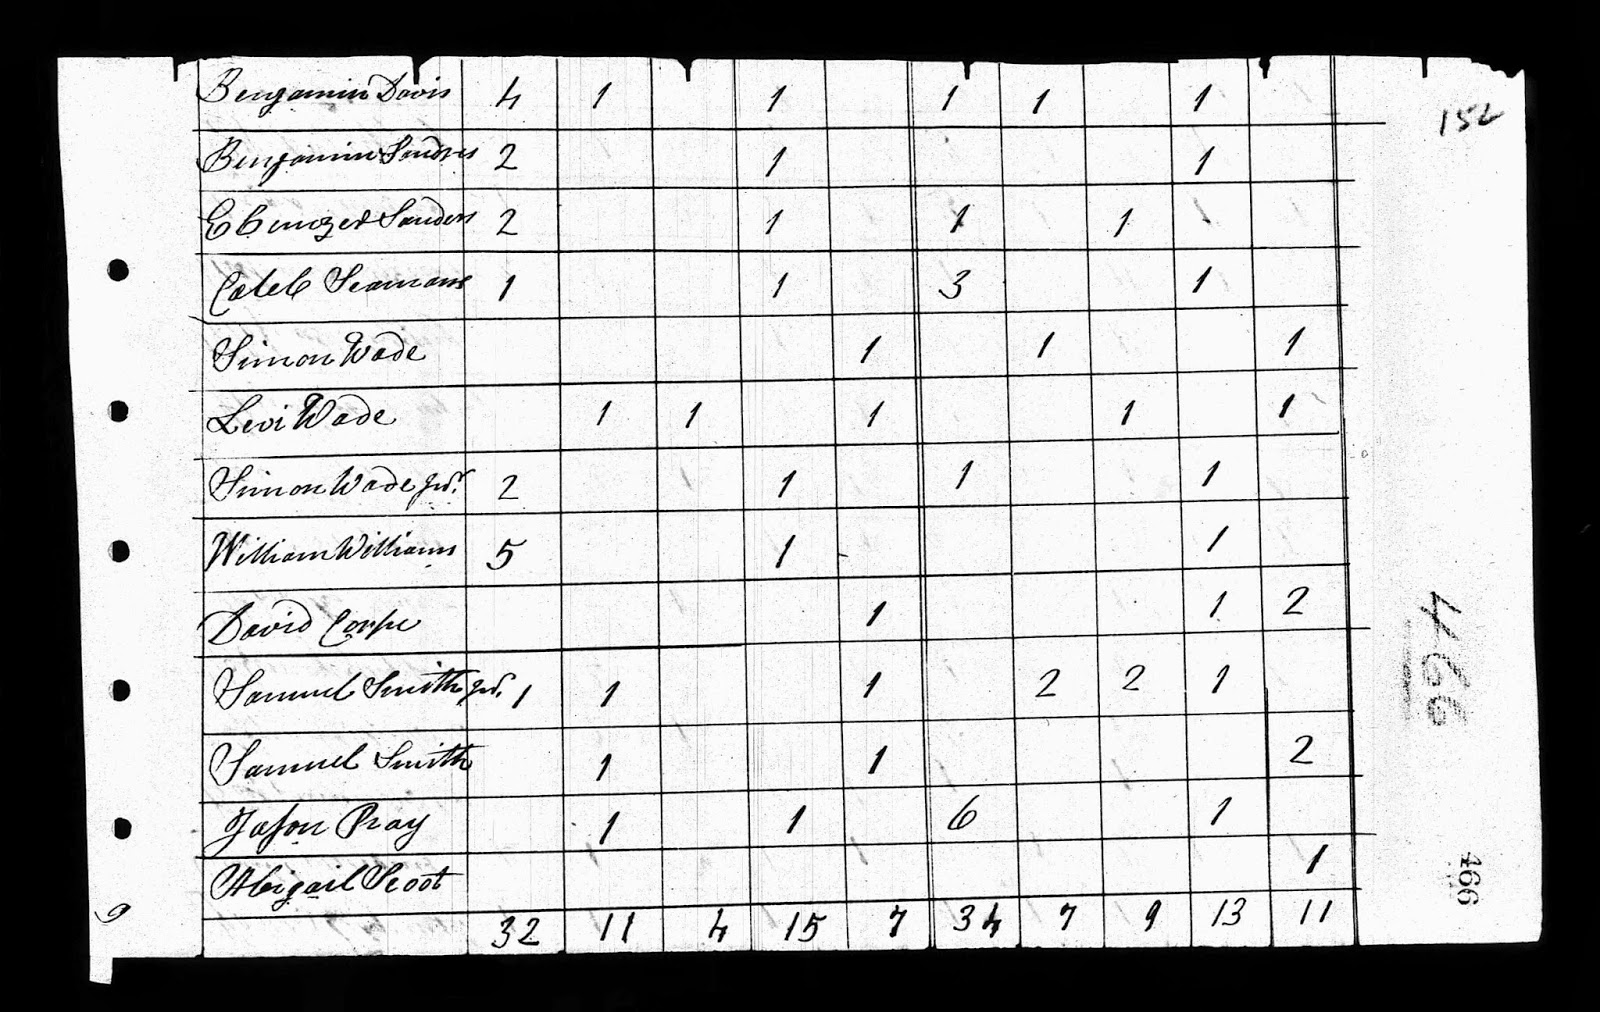 152
Benjamin Davis 4 1 1 1 1 1
Benjamin Sandrs 2 1 1
Ebenezer Sanders 2 1 1 1
Caleb Seamans 1 1 3 1
Simon Wade 1 1 1
Levi Wade 1 1 1 1 1
Simon Wade Jnr. 2 1 1 1
William Williams 5 1 1
David Corpe 1 1 2
Samuel Smith Jnr. 1 1 1 2 2 1
Samuel Smith 1 1 2
Jason Pray 1 1 6 1
Abigail Scoot 1
32 11 4 15 7 34 7 9 13 11
466
466
9